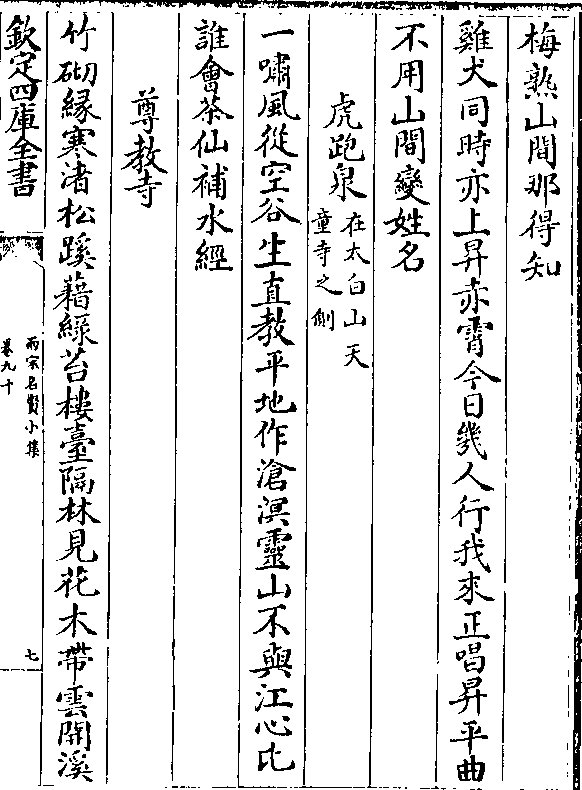 梅熟山間那得知
雞犬同時亦上昇赤霄今日幾人行我來正唱昇平曲
不用山間變姓名
虎跑泉在太白山天
童寺之側
一嘯風從空谷生直教平地作滄溟靈山不與江心比
誰會茶仙補水經
尊教寺
竹砌緣寒渚松蹊藉綠苔樓臺隔林見花木帶雲開溪
欽定四庫全書
兩宋名賢小集
卷九十
七